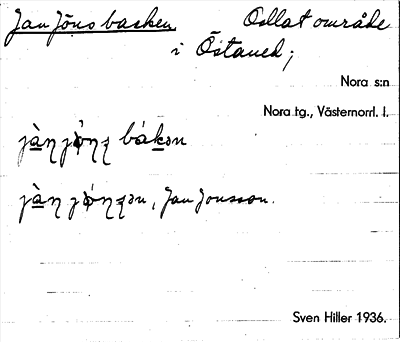 Jan Jöns backen Odlat område
i Östaned;
Nora s:n
Nora tg., Västernorrl. l.
bákən
, Jan Jonsson.
Sven Hiller 1936.